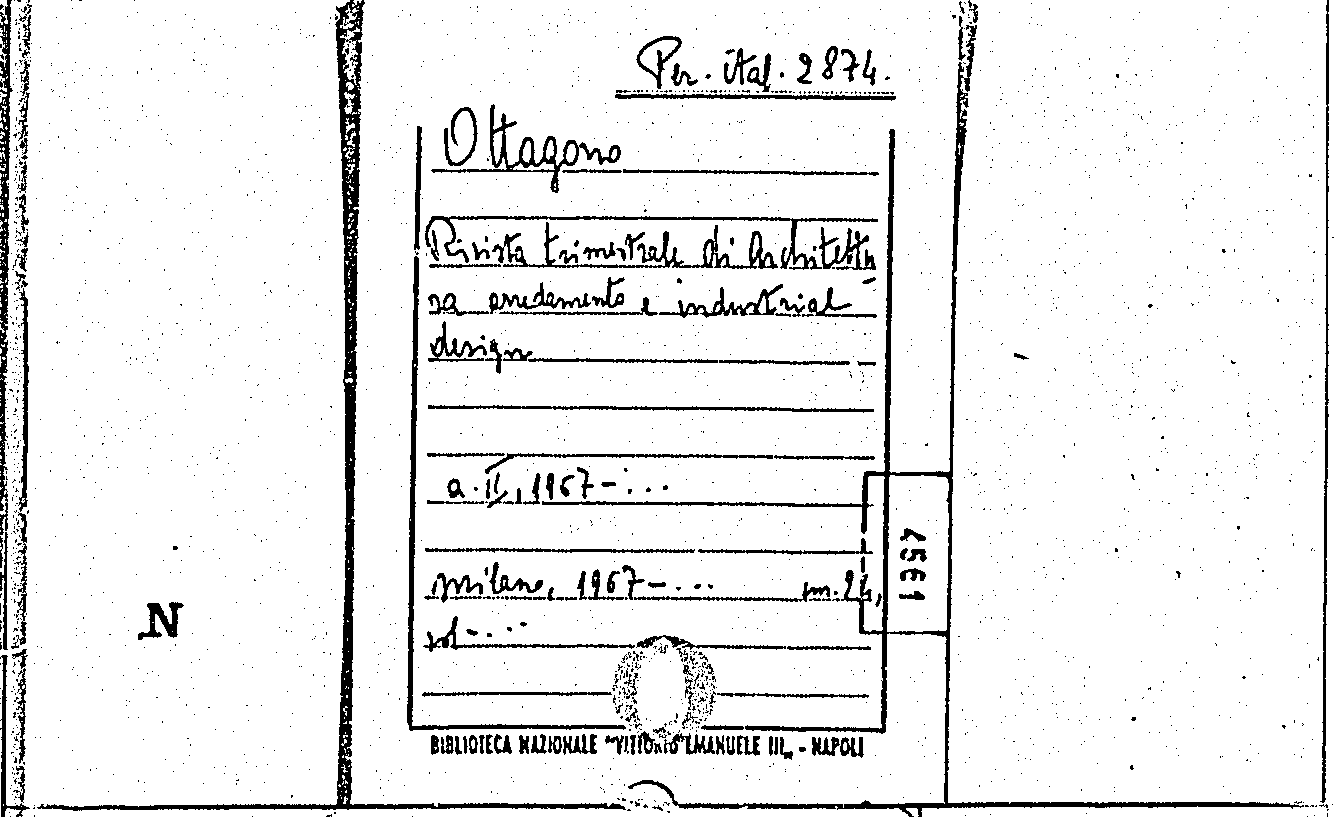 Per. ital. 2874.
Ottagono
Rivista trimestrale di Architettu
ra arredamento e industrial
design
a. II, 1967-....
Milano, 1967-.... m. 24,
vol-....
4561
N
BIBLIOTECA NAZIONALE "VITTORIO EMANUELE III„ - NAPOLI